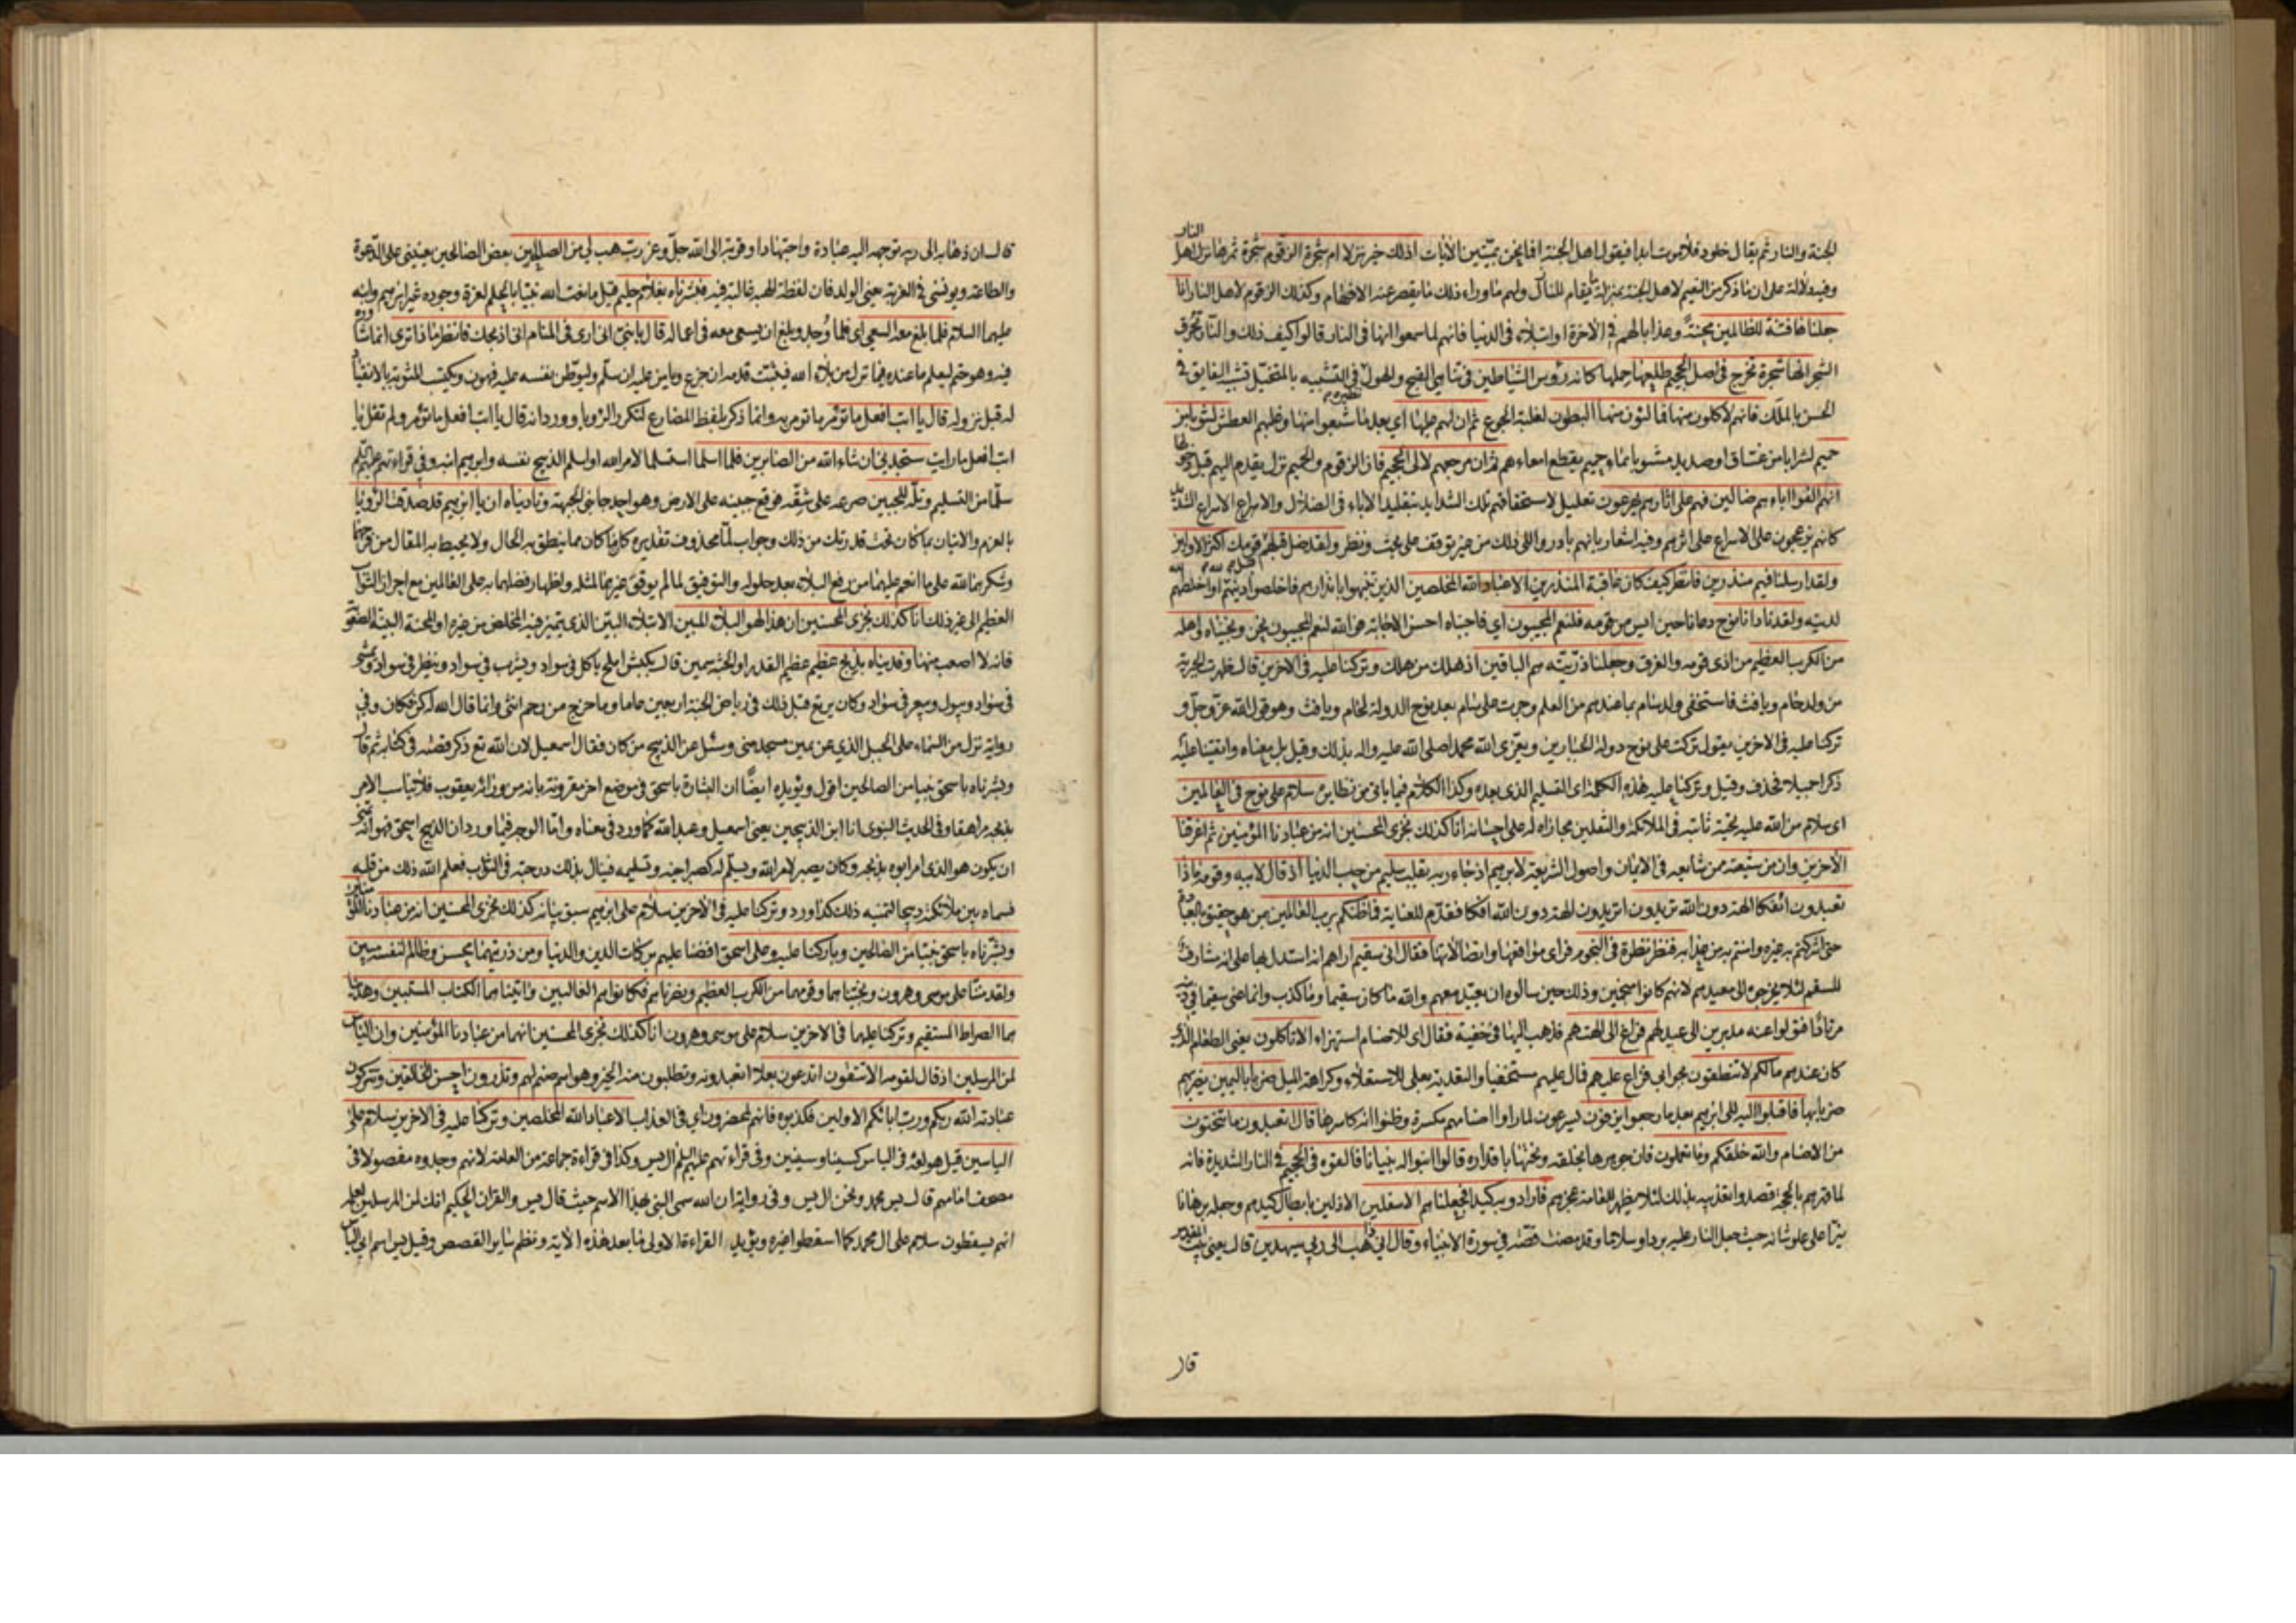 الجنة والنار ثم يقال خلود فلا موت ابدا فيقول اهل الجنة افما نحن بميتين الآيات اذلك خير نزلا ام شجرة الزقوم شجرة ثمرها نزل اهل النار
وفيه دلالة على ان ما ذكر من النعيم لاهل الجنة بمنزلة ما يقام للنازل ولهم ما وراء ذلك ما يقصر عنه الافهام وكذلك الزقوم لاهل النار انا
جعلناها فتنة للظالمين محنة وعذابا لهم في الآخرة او ابتلاء في الدنيا فانهم لما سمعوا انها في النار قالوا كيف ذلك والنار تحرق
الشجر انها شجرة تخرج في اصل الجحيم طلعها حملها كانه رؤوس الشياطين في تناهي القبح والهول في التشبيه بالمتخيل تشبيه الفايق في
الحسن بالملك فانهم لآكلون منها فمالئون منها البطون لغلبة الجوع ثم ان لهم عليها اي بعد ما شبعوا منها وغلبهم العطش لشوبا من
حميم لشرابا من غساق او صديد مشوبا بماء حميم يقطع امعاءهم ثم ان مرجعهم لالى الجحيم فان الزقوم والحميم نزل يقدم اليهم قبل دخولها
انهم الفوا آباءهم ضالين فهم على آثارهم يهرعون تعليل لاستحقاقهم تلك الشدايد بتقليد الآباء في الضلال والاهراع الاسراع الشديد
كانهم يزعجون على الاسراع على اثرهم وفيه اشعار بانهم بادروا الى ذلك من غير توقف على بحث ونظر ولقد ضل قبلهم قبل قومك اكثر الاولين
ولقد ارسلنا فيهم منذرين فانظر كيف كان عاقبة المنذرين الا عباد الله المخلصين الذين تنبهوا بانذارهم فاخلصوا دينهم لله او اخلصهم الله
لدينه ولقد نادانا نوح دعانا حين ايس من قومه فلنعم المجيبون اي فاجبناه احسن الاجابة فوالله لنعم المجيبون نحن ونجيناه واهله
من الكرب العظيم من اذى قومه والغرق وجعلنا ذريته هم الباقين اذ هلك من هلك وتركنا عليه في الآخرين قال ظهرت الجبرية
من ولد حام ويافث فاستخفى ولد سام بما عندهم من العلم وجرت على سام بعد نوح الدولة لحام ويافث وهو قول الله عز وجل و
تركنا عليه في الآخرين يقول تركت على نوح دولة الجبارين ويعزي الله محمدا صلى الله عليه واله بذلك وقيل بل معناه وابقينا عليه
ذكرا جميلا فحذف وقيل وتركنا عليه هذه الكلمة اي التسليم الذي بعده وكذا الكلام فيما ياتي من نظايره سلام على نوح في العالمين
اي سلام من الله عليه تحية ثابتة في الملائكة والثقلين مجازاة له على احسانه انا كذلك نجزي المحسنين انه من عبادنا المؤمنين ثم اغرقنا
الآخرين وان من شيعته ممن شايعه في الايمان واصول الشريعة لابرهيم اذ جاء ربه بقلب سليم من حب الدنيا اذ قال لابيه وقومه ماذا
تعبدون ائفكا الهة دون الله تريدون اتريدون الهة دون الله افكا فقدم للعناية فما ظنكم برب العالمين بمن هو حقيق بالعبادة
حتى اشركتم به غيره وامنتم به من عذابه فنظر نظرة في النجوم فراى مواقعها واتصالاتها فقال اني سقيم اراهم انه استدل بها على انه مشارف
للسقم لئلا يخرجوه الى معبدهم لانهم كانوا منجمين وذلك حين سالوه ان يعيد معهم والله ما كان سقيما وما كذب وانما عنى سقيما في دينه
مرتادا فتولوا عنه مدبرين الى عيد لهم فراغ الى الهتهم فذهب اليها في خفية فقال اي للاصنام استهزاء الا تاكلون يعني الطعام الذي
كان عندهم ما لكم لا تنطقون بجوابي فراغ عليهم فمال عليهم مستخفيا والتعدية بعلى للاستعلاء وكراهة الميل ضربا باليمين يضربهم
ضربا بها فاقبلوا اليه الى ابرهيم بعد ما رجعوا يزفون يسرعون لما راوا اصنامهم مكسرة وظنوا انه كاسرها قال اتعبدون ما تنحتون
من الاصنام والله خلقكم وما تعملون فان جوهرها بخلقه ونحتها باقداره قالوا ابنوا له بنيانا فالقوه في الجحيم في النار الشديدة فانه
لما قهرهم بالحجة قصدوا تعذيبه بذلك لئلا يظهر للعامة عجزهم فارادوا به كيدا فجعلناهم الاسفلين الاذلين بابطال كيدهم وجعله برهانا
نيرا على علو شانه حيث جعل النار عليه بردا وسلاما وقد مضت قصته في سورة الانبياء وقال اني ذاهب الى ربي سيهدين قال يعني بيت المقدس
قال
قال ان ذهابه الى ربه توجهه اليه عبادة واجتهادا وقربة الى الله جل وعز رب هب لي من الصالحين بعض الصالحين يعينني على الدعوة
والطاعة ويونسني في الغربة يعني الولد فان لفظة الهبة غالبة فيه فبشرناه بغلام حليم قيل ما نعت الله نبيا بالحلم لعزة وجوده غير ابرهيم وابنه
عليهما السلام فلما بلغ معه السعي اي فلما وجد وبلغ ان يسعى معه في اعماله قال يا بني اني ارى في المنام اني اذبحك فانظر ماذا ترى انما شاوره
فيه وهو حتم ليعلم ما عنده فيما نزل من بلاء الله فيثبت قدمه ان جزع ويامن عليه ان سلم وليوطن نفسه عليه فيهون ويكتسب المثوبة بالانقياد
له قبل نزوله قال يا ابت افعل ما تؤمر ما تومر به وانما ذكر بلفظ المضارع لتكرر الرؤيا وورد انه قال يا ابت افعل ما تؤمر ولم يقل يا
ابت افعل ما رايت ستجدني ان شاء الله من الصابرين فلما اسلما استسلما لامر الله او اسلم الذبيح نفسه وابرهيم ابنه وفي قراءتهم عليهم السلام
سلما من التسليم وتله للجبين صرعه على شقه فوقع جبينه على الارض وهو احد جانبي الجبهة وناديناه ان يا ابرهيم قد صدقت الرؤيا
بالعزم والاتيان بما كان تحت قدرتك من ذلك وجواب لما محذوف تقديره كان ما كان مما ينطق به الحال ولا يحيط به المقال من فرحهما
وشكرهما لله على ما انعم عليهما من رفع البلاء بعد حلوله والتوفيق لما لم يوفق غيرهما لمثله واظهار فضلهما به على العالمين مع احراز الثواب
العظيم الى غير ذلك انا كذلك نجزي المحسنين ان هذا لهو البلاء المبين الابتلاء البين الذي يتميز فيه المخلص من غيره او المحنة البينة الصعوبة
فانه لا اصعب منها وفديناه بذبح عظيم عظيم القدر او الجثة سمين قال بكبش املح ياكل في سواد ويشرب في سواد وينظر في سواد ويمشي
في سواد ويبول ويبعر في سواد وكان يرتع قبل ذلك في رياض الجنة اربعين عاما وما خرج من رحم انثى وانما قال الله له كن فكان وفي
رواية نزل من السماء على الجبل الذي عن يمين مسجد منى وسئل عن الذبيح من كان فقال اسمعيل لان الله تع ذكر قصته في كتابه ثم قال
وبشرناه باسحق نبيا من الصالحين اقول ويؤيده ايضا ان البشارة باسحق في موضع اخر مقرونة بانه من ورائه يعقوب فلا يناسب الامر
بذبحه مراهقا وفي الحديث النبوي انا ابن الذبيحين يعني اسمعيل وعبد الله كما ورد في معناه واما الوجه فيما ورد ان الذبيح اسحق فهو انه تمنى
ان يكون هو الذي امر ابوه بذبحه وكان يصبر لامر الله ويسلم له كصبر اخيه وتسليمه فينال بذلك درجته في الثواب فعلم الله ذلك من قلبه
فسماه بين ملائكته ذبيحا لتمنيه ذلك كذا ورد وتركنا عليه في الآخرين سلام على ابرهيم سبق بيانه كذلك نجزي المحسنين انه من عبادنا المؤمنين
وبشرناه باسحق نبيا من الصالحين وباركنا عليه وعلى اسحق افضنا عليهم بركات الدين والدنيا ومن ذريتهما محسن وظالم لنفسه مبين
ولقد مننا على موسى وهرون ونجيناهما وقومهما من الكرب العظيم ونصرناهم فكانوا هم الغالبين وآتيناهما الكتاب المستبين وهديناهما
هما الصراط المستقيم وتركنا عليهما في الآخرين سلام على موسى وهرون انا كذلك نجزي المحسنين انهما من عبادنا المؤمنين وان الياس
لمن المرسلين اذ قال لقومه الا تتقون اتدعون بعلا اتعبدونه وتطلبون منه الخير وهو اسم صنم لهم وتذرون احسن الخالقين وتتركون
عبادته الله ربكم ورب آبائكم الاولين فكذبوه فانهم لمحضرون اي في العذاب الا عباد الله المخلصين وتركنا عليه في الآخرين سلام على
الياسين قيل هو لغة في الياس كسينا وسينين وفي قراءتهم عليهم السلم ال يس وكذا في قراءة جماعة من العامة لانهم وجدوه مفصولا في
مصحف امامهم قال يس محمد ونحن ال يس وفي رواية ان الله سمى النبي بهذا الاسم حيث قال يس والقران الحكيم انك لمن المرسلين لعلمه
انهم يسقطون سلام على ال محمد كما اسقطوا غيره ويؤيد القراءة الاولى ما بعد هذه الآية ونظم ساير القصص وقيل يس اسم ابي الياس